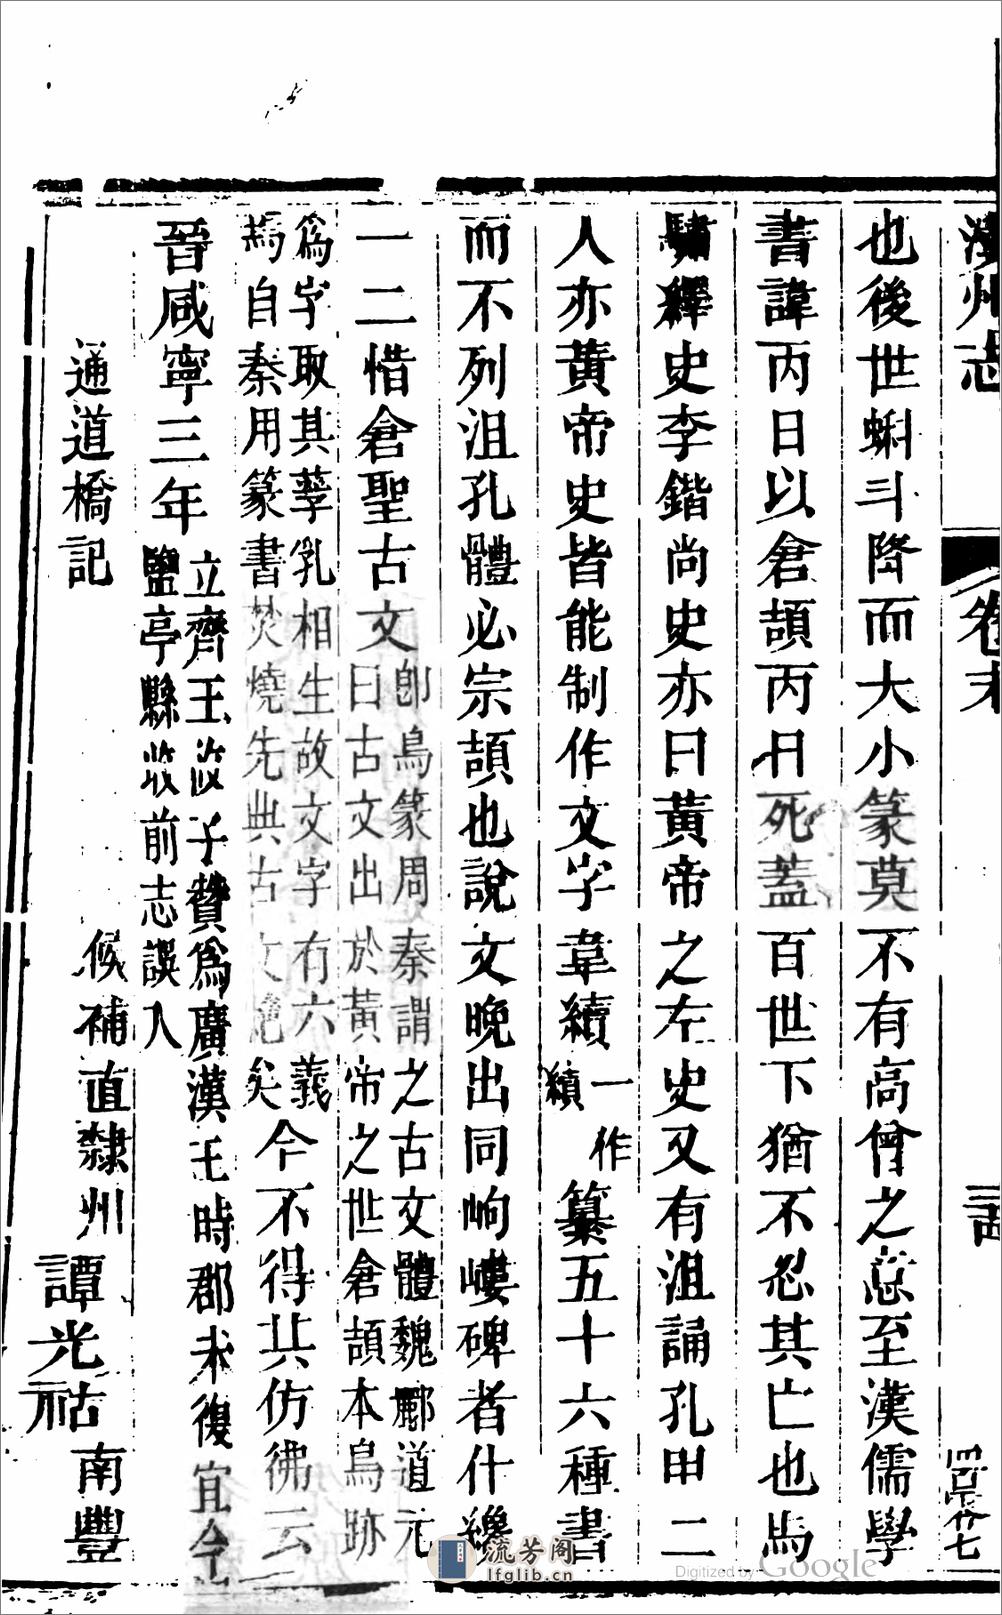 州志
卷末
也後世蝌斗降而大小篆莫不有高曾之意至漢儒學
書諱丙日以倉頡丙日死蓋百世下猶不忍其亡也馬
驌釋史李鍇尚史亦曰黃帝之左史又有沮誦孔甲二
人亦黃帝史皆能制作文字韋續一作纘纂五十六種書
而不列沮孔體必宗頡也說文晚出同岣嶁碑者什纔
一二惜倉聖古文卽鳥篆周秦謂之古文體魏酈道元
曰古文出於黃帝之世倉頡本鳥跡
爲字取其孳乳相生故文字有六義
焉自秦用篆書焚燒先典古文絶矣今不得其仿彿云
晉咸寧三年立齊王攸子贊爲廣漢王時郡未復宜今
鹽亭縣攸前志誤入
通道橋記
候補直隸州譚光祜南豐
流芳阁
lfglib.cn
Digitized by Google